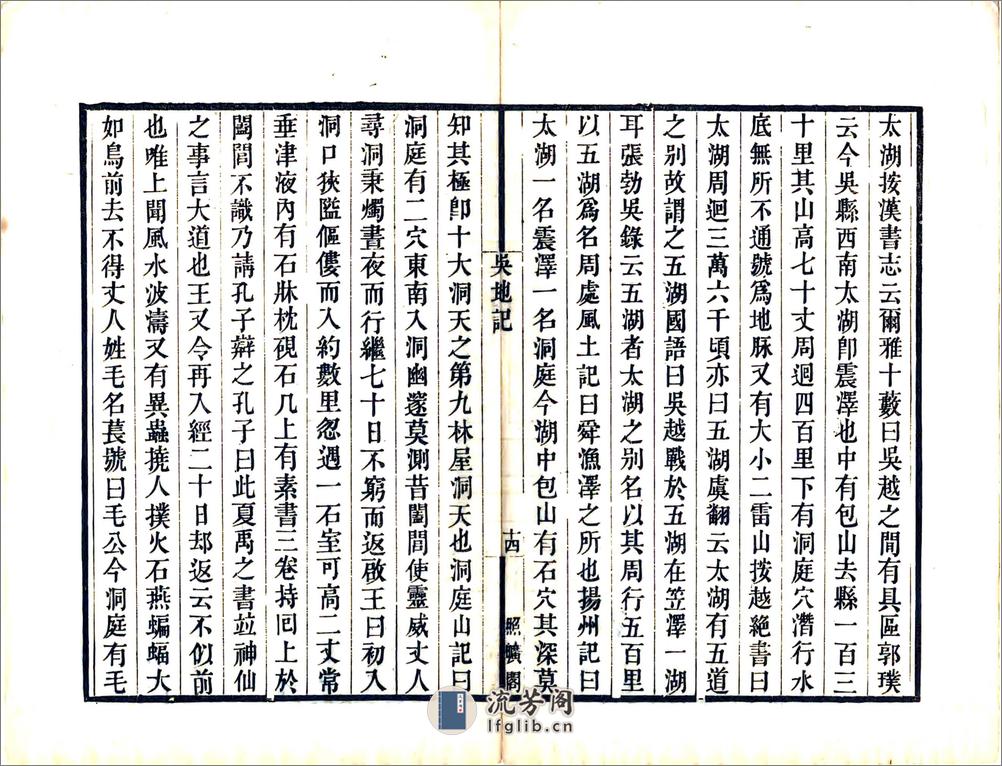 太湖按漢書志云爾雅十藪曰吳越之間有具區郭璞
云今吳縣西南太湖卽震澤也中有包山去縣一百三
十里其山高七十丈周迴四百里下有洞庭穴潛行水
底無所不通號爲地脉又有大小二雷山按越絕書曰
太湖周迴三萬六千頃亦曰五湖虞翻云太湖有五道
之別故謂之五湖國語曰吳越戰於五湖在笠澤一湖
耳張勃吳錄云五湖者太湖之別名以其周行五百里
以五湖爲名周處風土記曰舜漁澤之所也揚州記曰
太湖一名震澤一名洞庭今湖中包山有石穴其深莫
吳地記
十四
照曠閣
知其極卽十大洞天之第九林屋洞天也洞庭山記曰
洞庭有二穴東南入洞幽邃莫測昔闔閭使靈威丈人
尋洞秉燭晝夜而行繼七十日不窮而返啟王曰初入
洞口狹隘傴僂而入約數里忽遇一石室可高二丈常
垂津液內有石牀枕硯石几上有素書三卷持囘上於
闔閭不識乃請孔子辯之孔子曰此夏禹之書竝神仙
之事言大道也王又令再入經二十日却返云不似前
也唯上聞風水波濤又有異蟲撓人撲火石燕蝙蝠大
如鳥前去不得丈人姓毛名萇號曰毛公今洞庭有毛
流芳閣
lfglib.cn